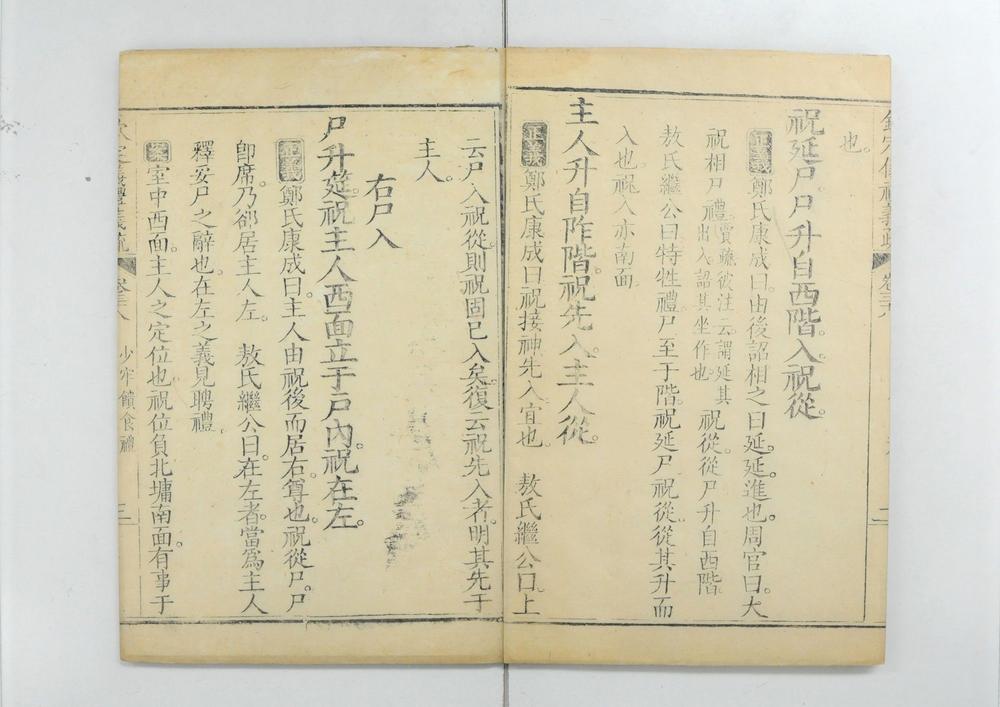 也。
祝延尸尸升自西階入祝從。
正義鄭氏康成曰由後詔相之曰延延進也周官曰大
祝相尸禮賈疏彼注云謂延其出入詔其坐作也祝從從尸升自西階
敖氏繼公曰特牲禮尸至于階祝延尸祝從從其升而
入也祝入亦南面
主人升自阼階祝先入主人從。
正義鄭氏康成曰祝接神先入宜也 敖氏繼公曰上
云尸入祝從則祝固已入矣復云祝先入者明其先于
主人。
右尸入
尸升筵祝主人西面立于戶內祝在左。
正義鄭氏康成曰主人由祝後而居右尊也祝從尸。尸
卽席。乃卻居主人左。 敖氏繼公曰在左者當爲主人
釋妥尸之辭也在左之義見聘禮
案室中西面主人之定位也祝位負北墉南面有事于
欽定儀禮義疏 卷三十八 少牢饋食禮 三